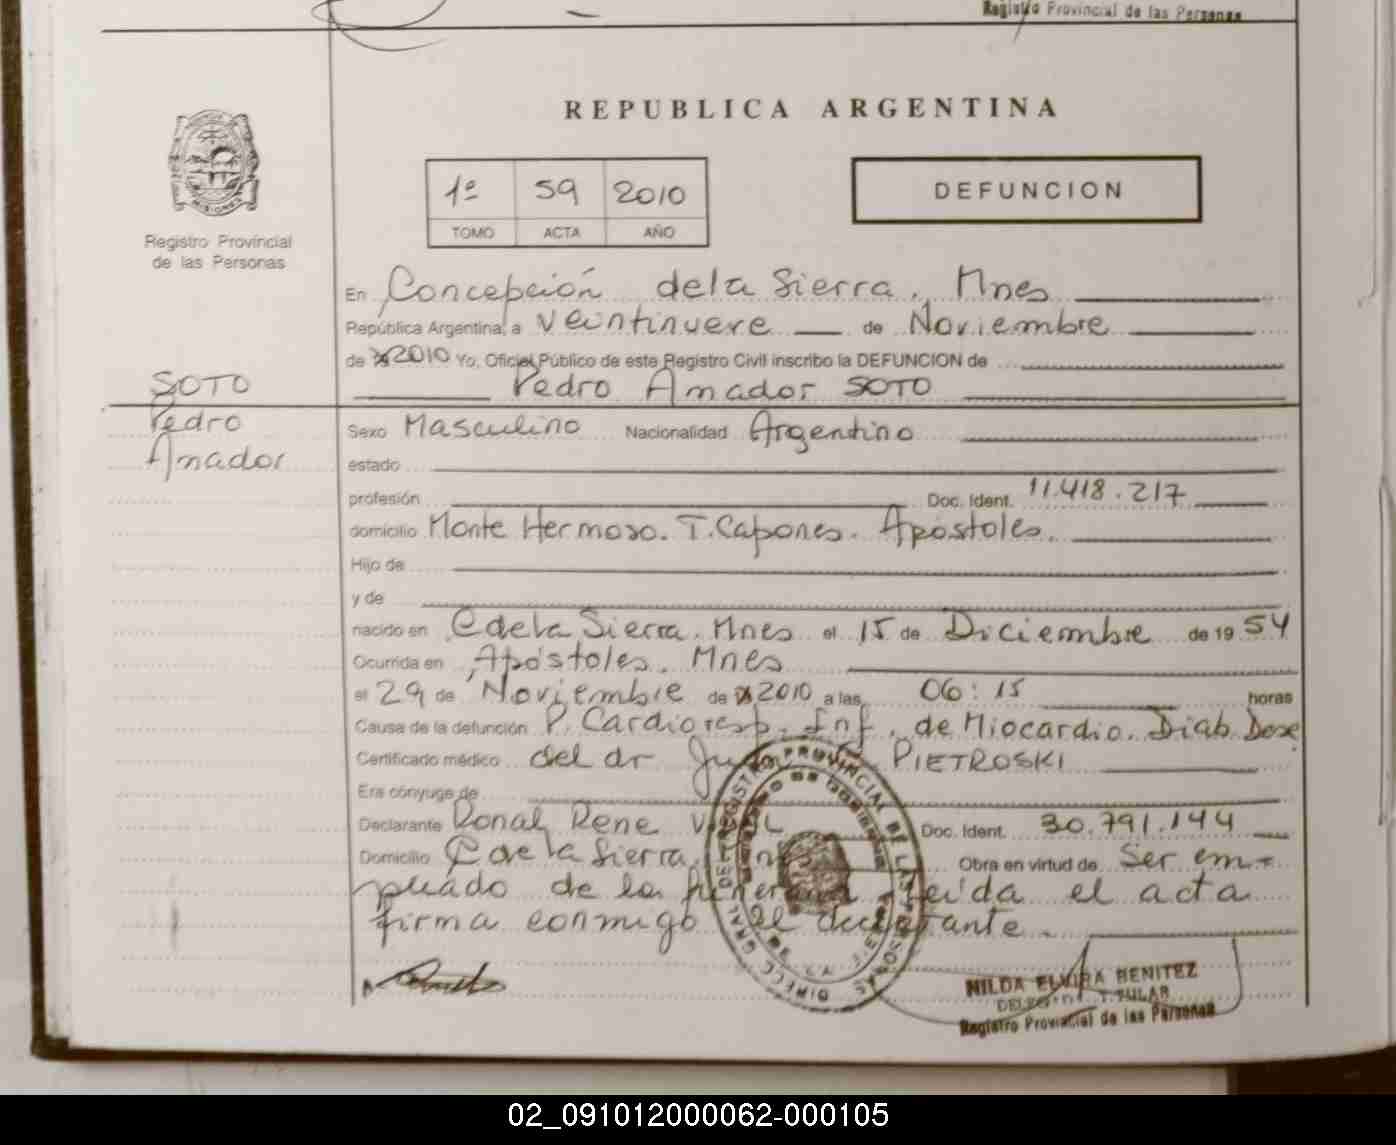 Registro Provincial de las Personas
REPUBLICA ARGENTINA
MISIONES
Registro Provincial
de las Personas
1º 59 2010
TOMO ACTA AÑO
DEFUNCION
En Concepción dela Sierra. Mnes
República Argentina, a Veintinueve de Noviembre
de 2010 Yo, Oficial Público de este Registro Civil inscribo la DEFUNCION de
Pedro Amador SOTO
SOTO
Pedro
Amador
Sexo Masculino Nacionalidad Argentino
estado
profesión Doc. Ident. 11.418.217
domicilio Monte Hermoso. T. Capones. Apóstoles.
Hijo de
y de
nacido en C dela Sierra. Mnes el 15 de Diciembre de 19 54
Ocurrida en Apóstoles. Mnes
el 29 de Noviembre de 2010 a las 06:15 horas
Causa de la defunción P. Cardioresp. Inf. de Miocardio. Diab. Desc
Certificado médico del dr PIETROSKI
Era cónyuge de
Declarante Ronal Rene Doc. Ident. 30.791.144
Domicilio C de la Sierra. Obra en virtud de Ser em-
pleado de la el acta
firma conmigo el declarante.
DIRECC. GRAL. DEL REGISTRO PROVINCIAL DE LAS PERSONAS
NILDA ELVIRA BENITEZ
TITULAR
Registro Provincial de las Personas
02_091012000062-000105